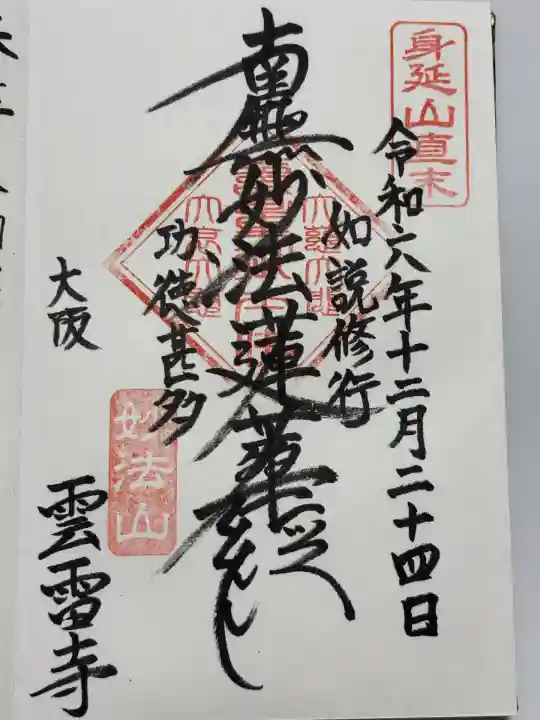 身延山直末
令和六年十二月二十四日
如説修行
南無妙法蓮華経
功徳甚多
大阪
妙法山
雲雷寺